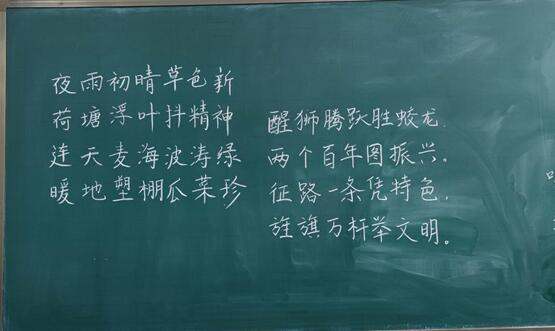 夜雨初晴草色新
荷塘浮叶抖精神
连天麦海波涛绿
暖地塑棚瓜菜珍
醒狮腾跃胜蛟龙.
两个百年图振兴。
征路一条凭特色,
旌旗万杆举文明。